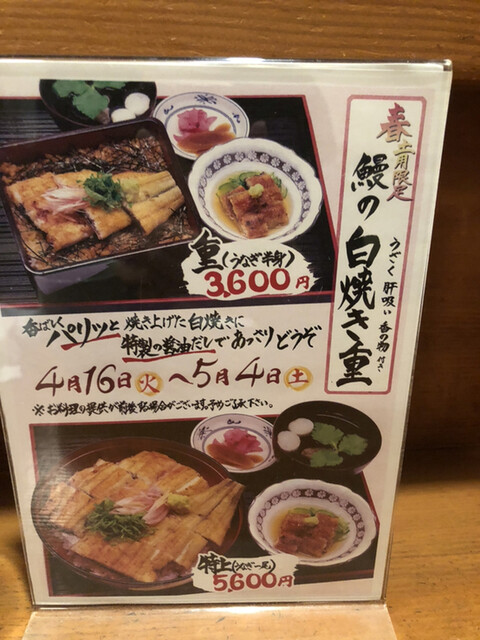 春土用限定
鰻の白焼き重
うざく 肝吸い 香の物 付き
重(うなぎ半身)
3,600円
香ばしくパリッと焼き上げた白焼きに
特製の醤油だしであっさりどうぞ
4月16日火〜5月4日土
※お料理の提供が前後する場合がございます。予めご了承下さい。
特上(うなぎ一尾)
5,600円